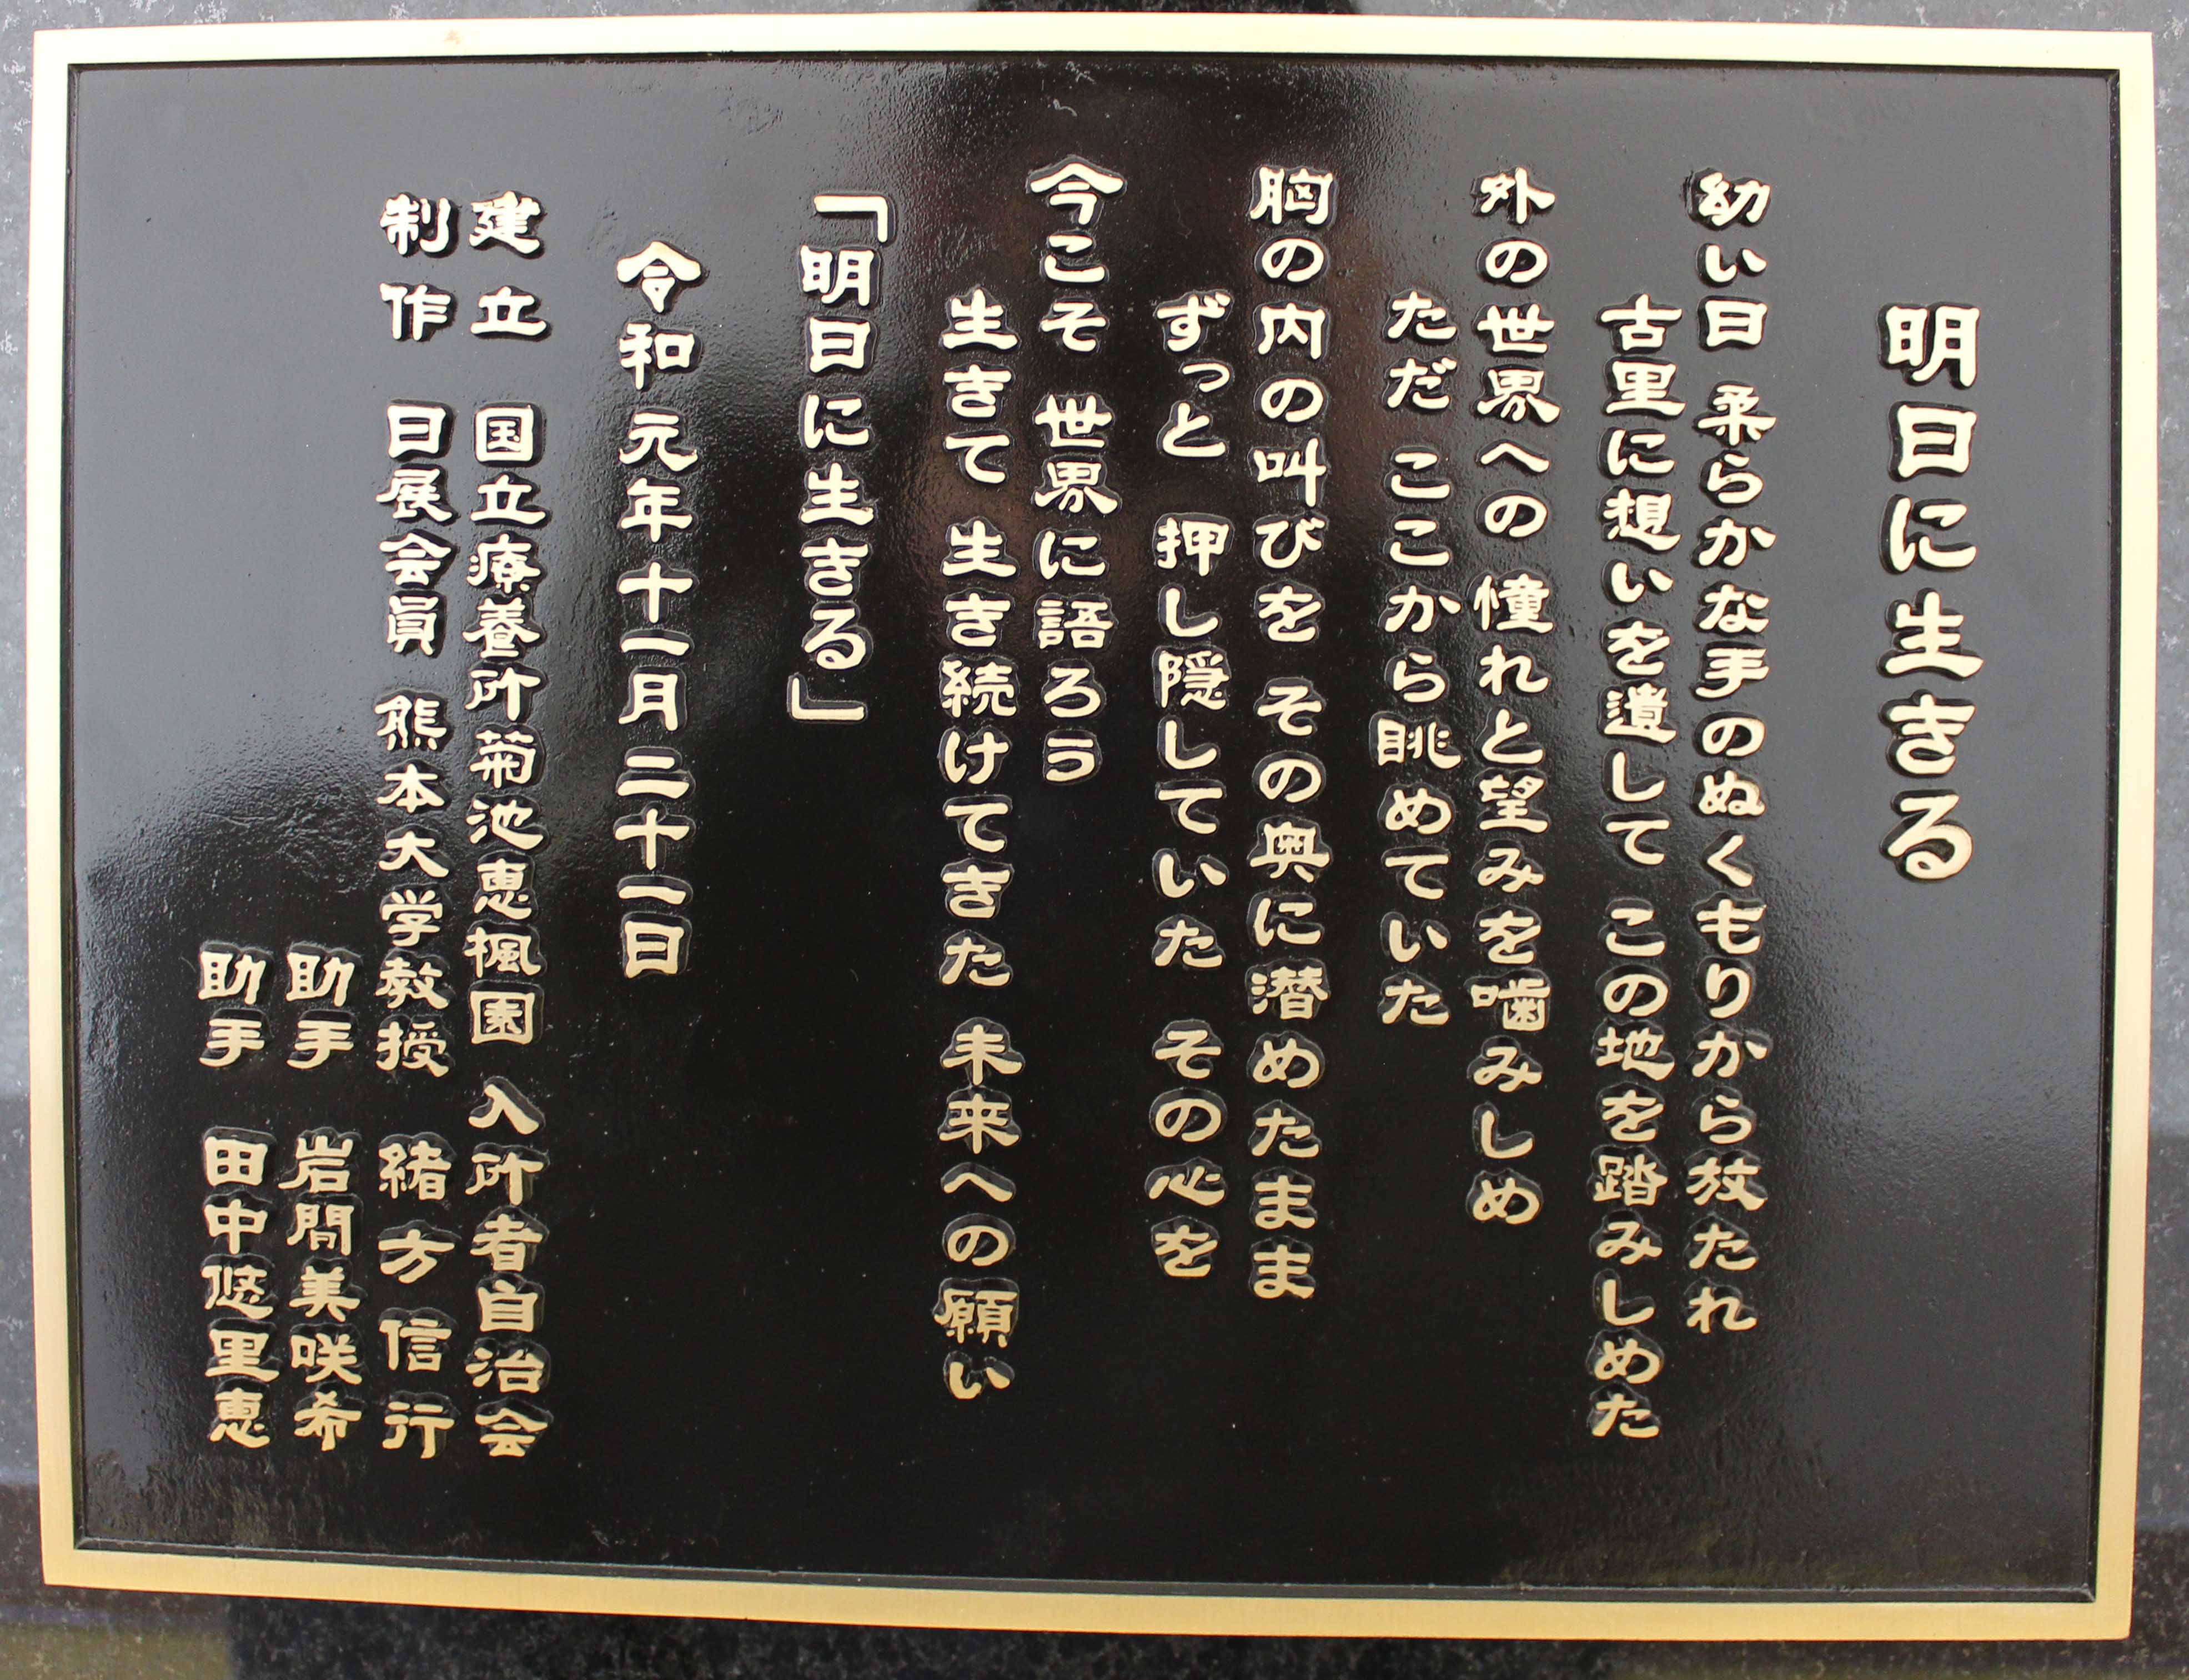 明日に生きる
幼い日 柔らかな手のぬくもりから放たれ
古里に想いを遺して この地を踏みしめた
外の世界への 憧れと望みを噛みしめ
ただ ここから眺めていた
胸の内の叫びを その奥に潜めたまま
ずっと 押し隠していた その心を
今こそ 世界に語ろう
生きて 生き続けてきた 未来への願い
「明日に生きる」
令和元年十一月二十一日
建立 国立療養所菊池恵楓園 入所者自治会
制作 日展会員 熊本大学教授 緒方信行
助手 岩間美咲希
助手 田中悠里恵